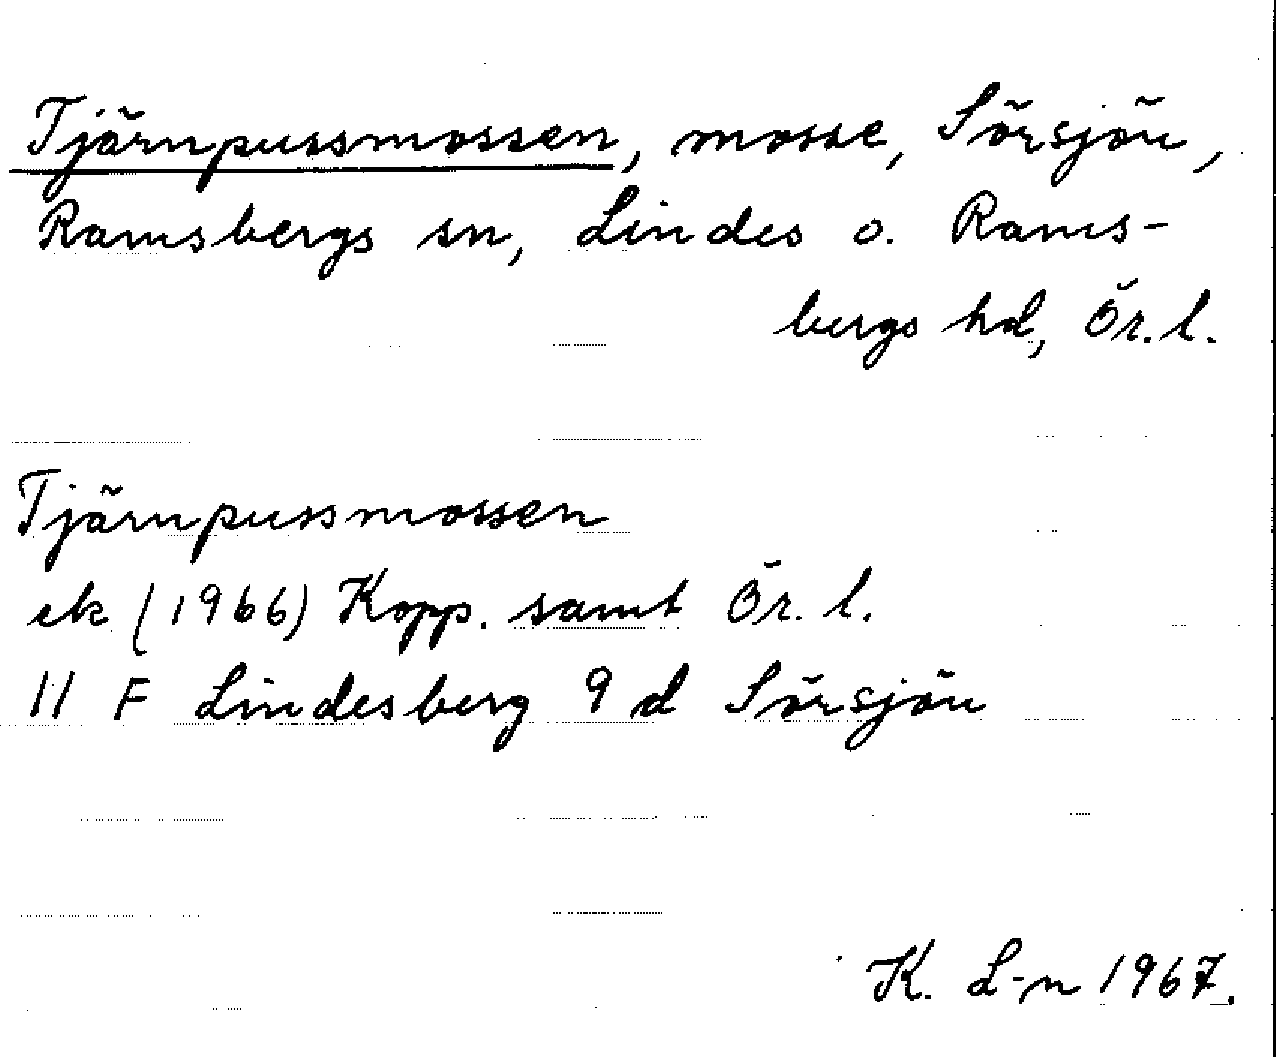 Tjärnpussmossen, mosse, Sörsjön,
Ramsbergs sn, Lindes o. Rams-
bergs hd, Ör. l.
Tjärnpussmossen
ek (1966) Kopp. samt Ör. l.
11 F Lindesberg 9 d Sörsjön
K. L-n 1967.